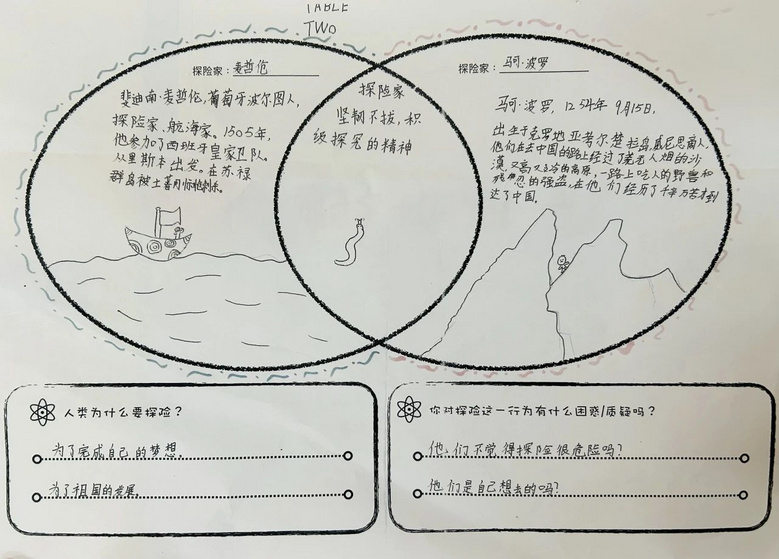 TABLE
TWO
探险家：麦哲伦
斐迪南·麦哲伦，葡萄牙波尔图人，
探险家、航海家。1505年，
他参加了西班牙皇家卫队。
从里斯本出发。在苏禄
群岛被土著
探险家
坚韧不拔，积
极探究的精神
探险家：马可·波罗
马可·波罗，1254年9月15日，
出生于克罗地亚考尔楚拉岛威尼思商人，
他们在去中国的路上经过了毫无人烟的沙
漠又高又冷的高原，一路上吃人的野兽和
残忍的强盗，在他们经历了千辛万苦才到
达了中国。
人类为什么要探险？
为了完成自己的梦想。
为了祖国的发展。
你对探险这一行为有什么困惑/质疑吗？
他们不觉得探险很危险吗？
他们是自己想去的吗？